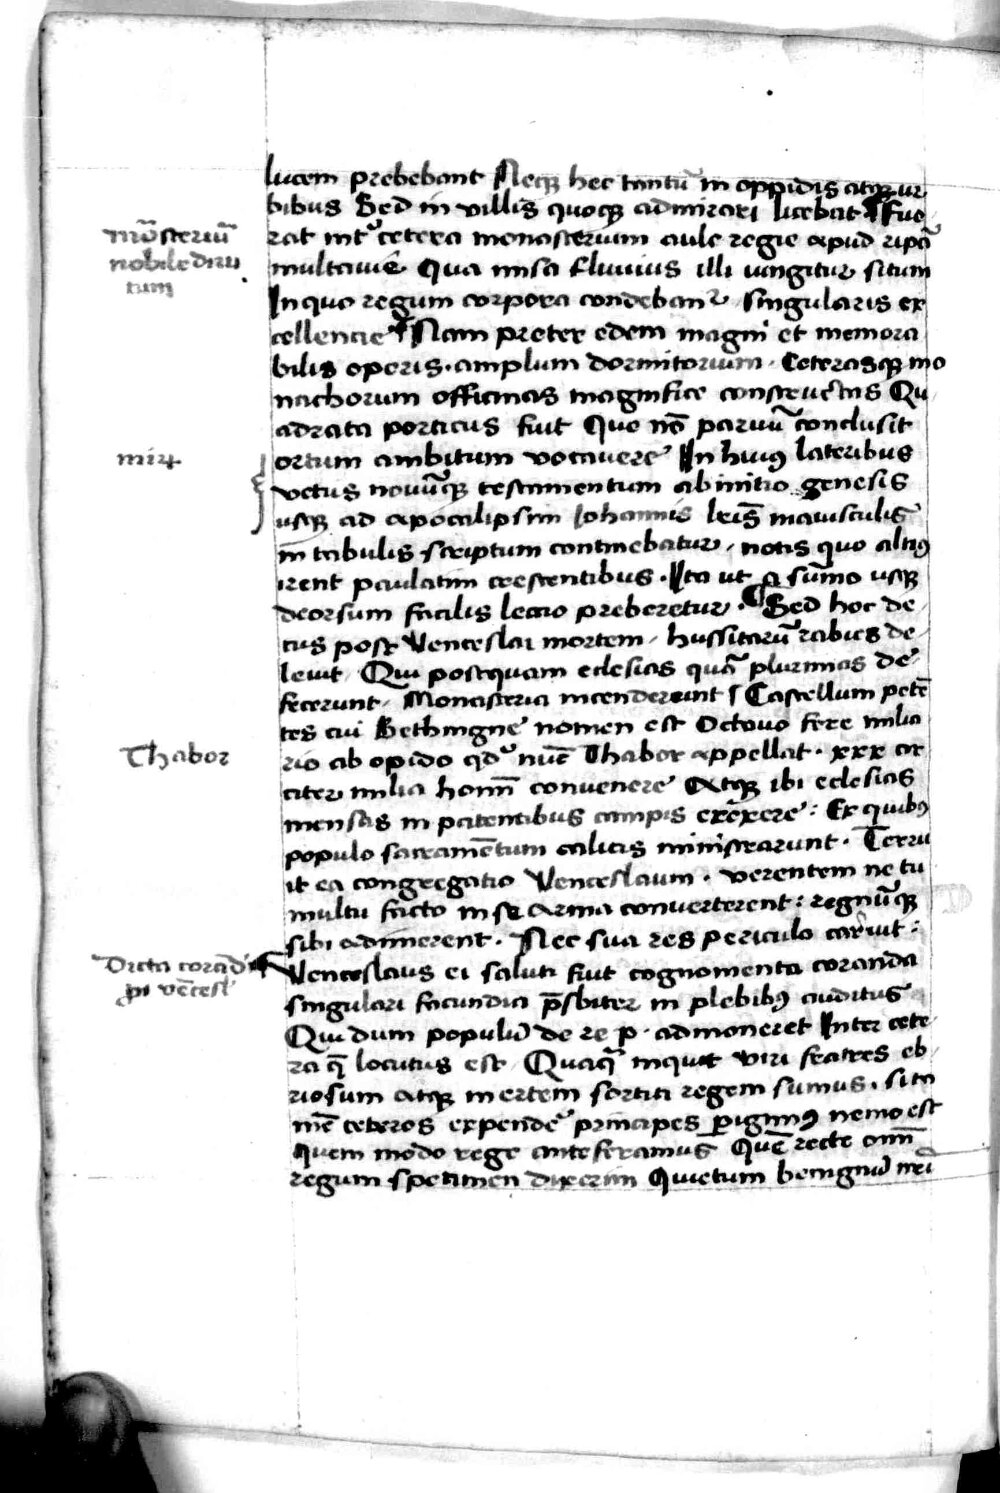 lucem prebebant Neq hec tantū in oppidis atq ur
bibus Sed in villis quoq admirari licebat Fue
rat int cetera monasterium aule regie apud ripā
multauie Qua misa fluuius illi iungitur situm
In quo regum corpora condebant singularis ex
cellencie Nam preter edem magni et memora
bilis operis · amplum dormitorium · Ceterasq mo
nachorum officinas magnifice constructas Qu
adrata porticus fuit Que nō paruū conclusit
ortum ambitum vocauere In huiꝰ lateribus
vetus nouūq testamentum ab initio genesis
usq ad apocalipsim Iohannis lrīs maiusculis
in tabulis scriptum continebatur, notis quo altiꝰ
irent paulatim crescentibus · Ita ut a sūmo usq
deorsum facilis lectio preberetur · Sed hoc de
cus post Venceslai mortem, hussitarū rabies de
leuit, Qui postquam eclesias quā plurimas de
fecerunt, Monasteria incenderunt Castellum petē
tes cui Bethingne nomen est Octouo fere milia
rio ab opido qd nūc Thabor appellat · xxx cir
citer milia hoīm convenere Atq ibi eclesias
mensas in patentibus campis erexere : Ex quibꝰ
populo sacramētum calicis ministrarunt · Terru
it ea congregatio Venceslaum · verentem ne tu
multu facto in se arma converterent : regnūq
sibi adimerent · Nec sua res periculo caruit :
Venceslaus ei saluti fuit cognomento coranda
singulari facundia p̄sbiter in plebibꝰ auditus
Qui dum populū de re p · admoneret Inter cete
ra q̄ locutus est, Quāq inquit viri fratres eb
riosum atq inertem sortiti regem sumus · si ta
mē ceteros expendē principes pigimꝰ nemo est
quem modo rege anteferamus Quē recte oīm
regum specimen dixerim Quietum benignū
mōsteriū
nobile diru
tum
mir
Thabor
Dicta corād
pī vēcesl